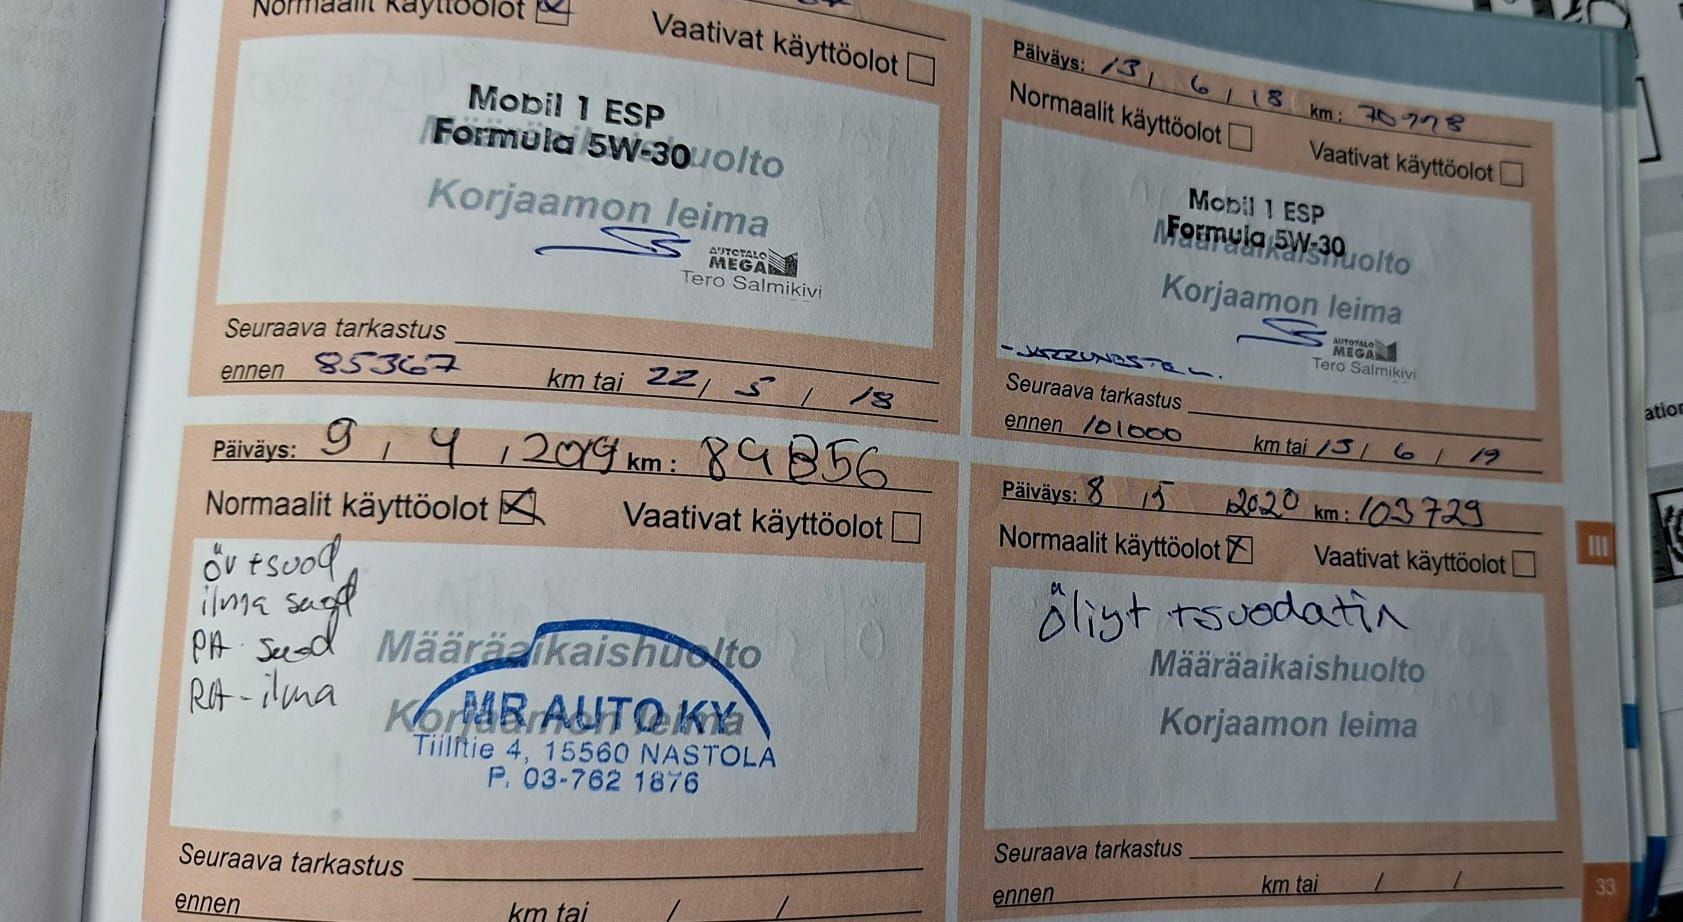 Normaalit käyttöolot
Vaativat käyttöolot
Mobil 1 ESP
Formula 5W-30
Määräaikaishuolto
Korjaamon leima
AUTOTALO
MEGA
Tero Salmikivi
Seuraava tarkastus
ennen 85367 km tai 22 / 5 / 18
Päiväys: 13 / 6 / 18 km: 70778
Normaalit käyttöolot
Vaativat käyttöolot
Mobil 1 ESP
Formula 5W-30
Määräaikaishuolto
Korjaamon leima
AUTOTALO
MEGA
Tero Salmikivi
Seuraava tarkastus
ennen 101000 km tai 13 / 6 / 19
Päiväys: 9 / 4 / 2019 km: 89856
Normaalit käyttöolot
Vaativat käyttöolot
öv+suod
ilma suod
PA suod
RA-ilma
Määräaikaishuolto
Korjaamon leima
MR AUTO KY
Tiilitie 4, 15560 NASTOLA
P. 03-762 1876
Seuraava tarkastus
ennen km tai / /
Päiväys: 8 5 2020 km: 103729
Normaalit käyttöolot
Vaativat käyttöolot
öljyt +suodatin
Määräaikaishuolto
Korjaamon leima
Seuraava tarkastus
ennen km tai / /
III
33